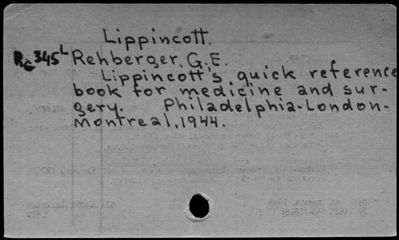 Lippincott.
RG345L Rehberger, G.E.
Lippincott's quick reference
book for medicine and sur-
gery. Philadelphia-London-
Montreal, 1944.